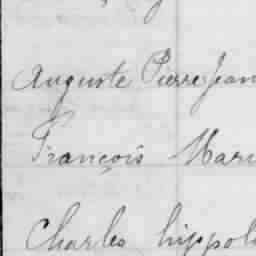 Auguste Pierre Jean
François Mari
Charles hippol